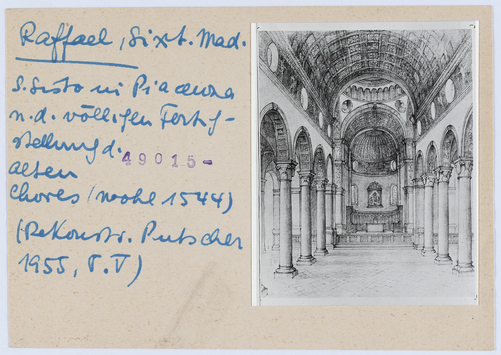 Raffael, Sixt. Mad.
S. Sisto in Piacenza
n. d. völligen Fertig-
stellung d.
49015-
alten
Chores (wohl 1544)
(Rekonstr. Putscher
1955, T. V)